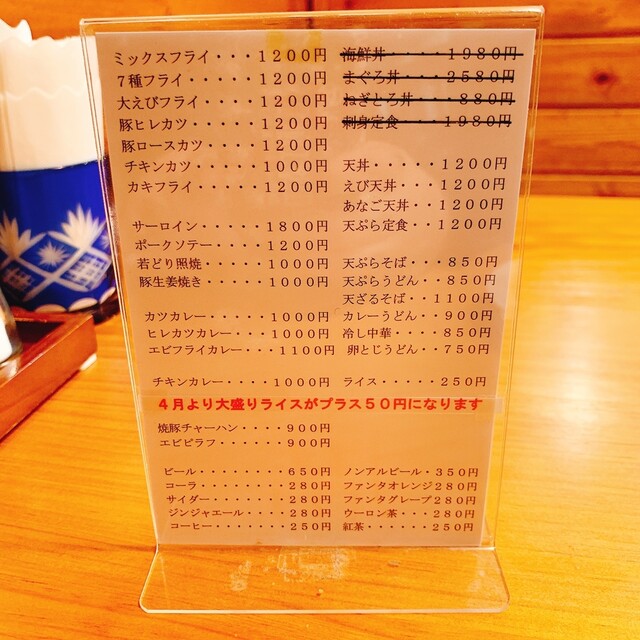 ミックスフライ・・・１２００円
７種フライ・・・・・１２００円
大えびフライ・・・・１２００円
豚ヒレカツ・・・・・１２００円
豚ロースカツ・・・・１２００円
チキンカツ・・・・・１０００円
カキフライ・・・・・１２００円
サーロイン・・・・・１８００円
ポークソテー・・・・１２００円
若どり照焼・・・・・１０００円
豚生姜焼き・・・・・１０００円
カツカレー・・・・・１０００円
ヒレカツカレー・・・１０００円
エビフライカレー・・・１１００円
チキンカレー・・・・１０００円
海鮮丼・・・・・１９８０円
まぐろ丼・・・・２５８０円
ねぎとろ丼・・・・８８０円
刺身定食・・・・１９８０円
天丼・・・・・１２００円
えび天丼・・・１２００円
あなご天丼・・１２００円
天ぷら定食・・１２００円
天ぷらそば・・・８５０円
天ぷらうどん・・８５０円
天ざるそば・・１１００円
カレーうどん・・９００円
冷し中華・・・・８５０円
卵とじうどん・・７５０円
ライス・・・・・２５０円
４月より大盛りライスがプラス５０円になります
焼豚チャーハン・・・・９００円
エビピラフ・・・・・・９００円
ビール・・・・・・・・６５０円
コーラ・・・・・・・・２８０円
サイダー・・・・・・・２８０円
ジンジャエール・・・・２８０円
コーヒー・・・・・・・２５０円
ノンアルビール・３５０円
ファンタオレンジ２８０円
ファンタグレープ２８０円
ウーロン茶・・・２８０円
紅茶・・・・・・２５０円